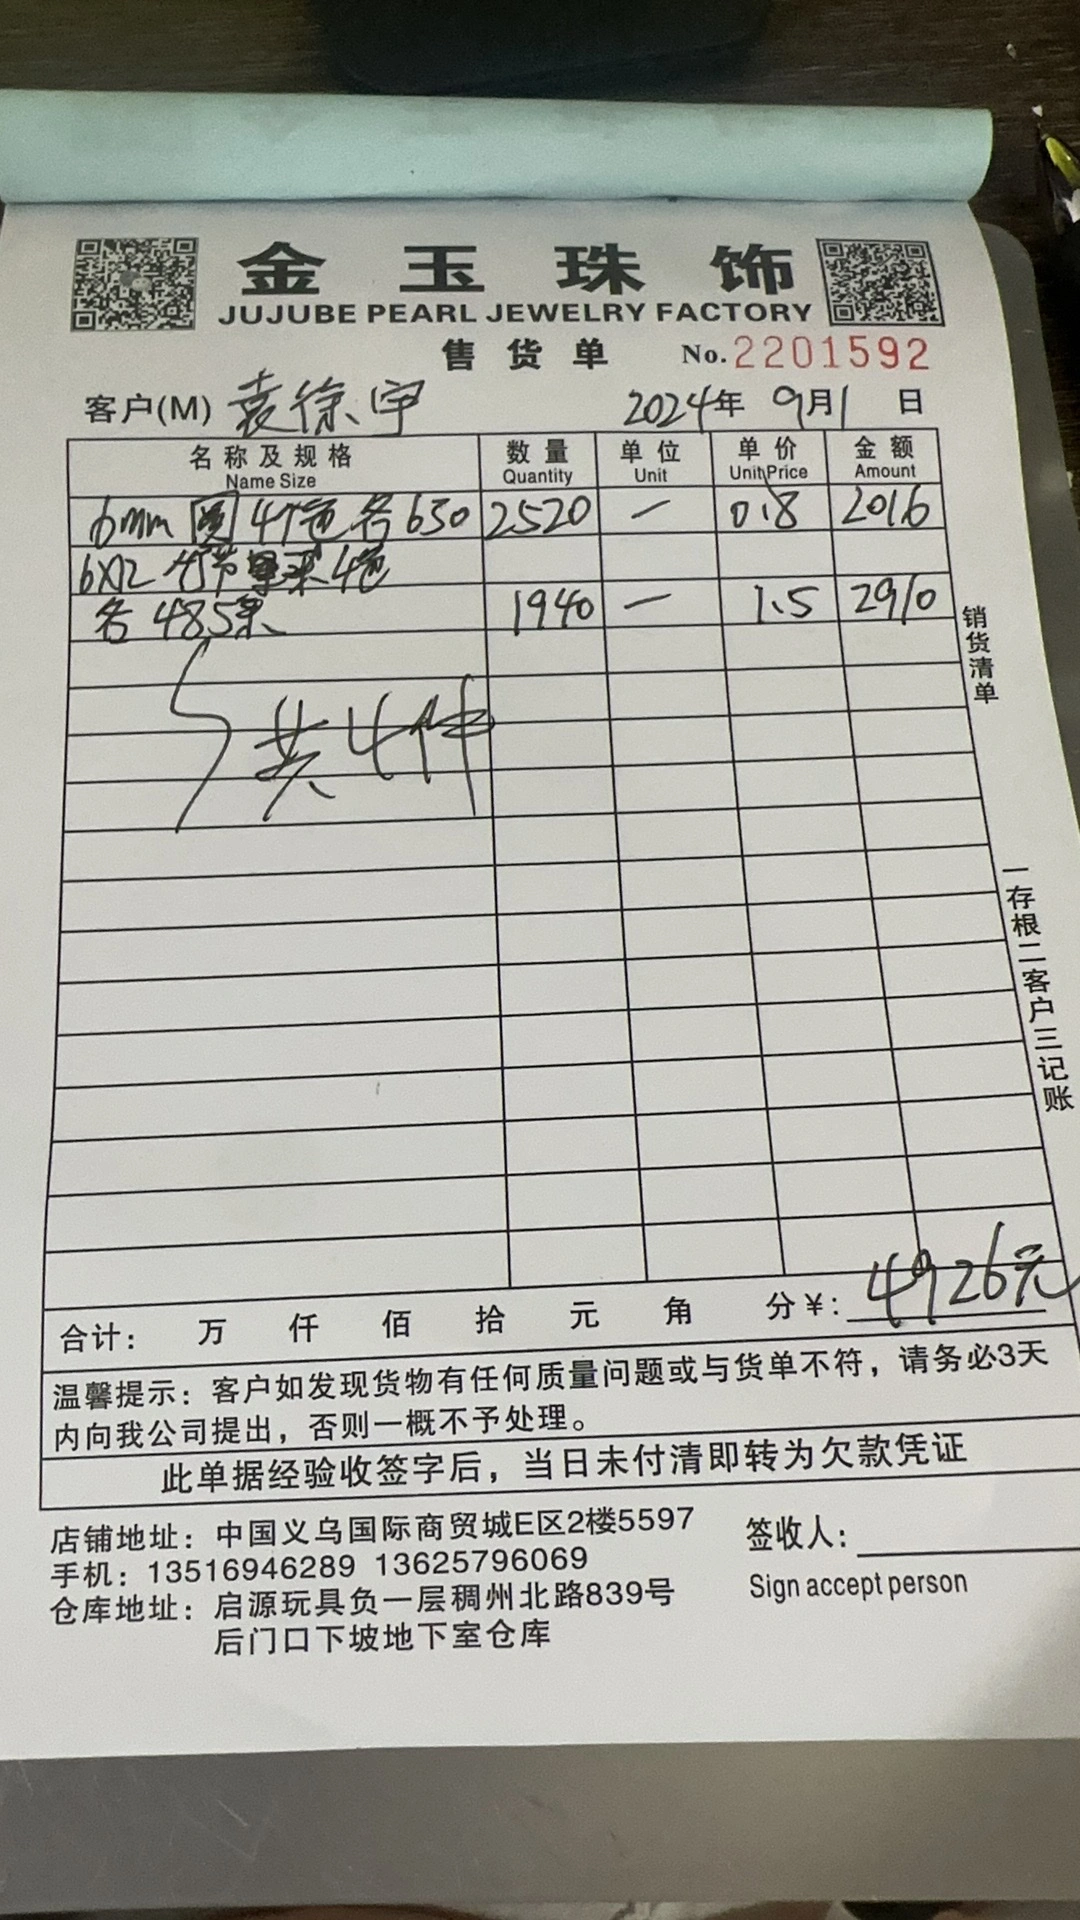 金玉珠饰
JUJUBE PEARL JEWELRY FACTORY
售货单 No.2201592
客户(M) 袁徐宇 2024年 9月1日
名称及规格 数量 单位 单价 金额
Name Size Quantity Unit Unit Price Amount
6mm 圆 4个色 各630 2520 — 0.8 2016
6X12 竹节 4色
各 485条 1940 — 1.5 2910
共4件
销货清单
一存根二客户三记账
合计: 万 仟 佰 拾 元 角 分¥: 4926元
温馨提示: 客户如发现货物有任何质量问题或与货单不符，请务必3天
内向我公司提出，否则一概不予处理。
此单据经验收签字后，当日未付清即转为欠款凭证
店铺地址: 中国义乌国际商贸城E区2楼5597 签收人:
手机: 13516946289 13625796069 Sign accept person
仓库地址: 启源玩具负一层稠州北路839号
后门口下坡地下室仓库